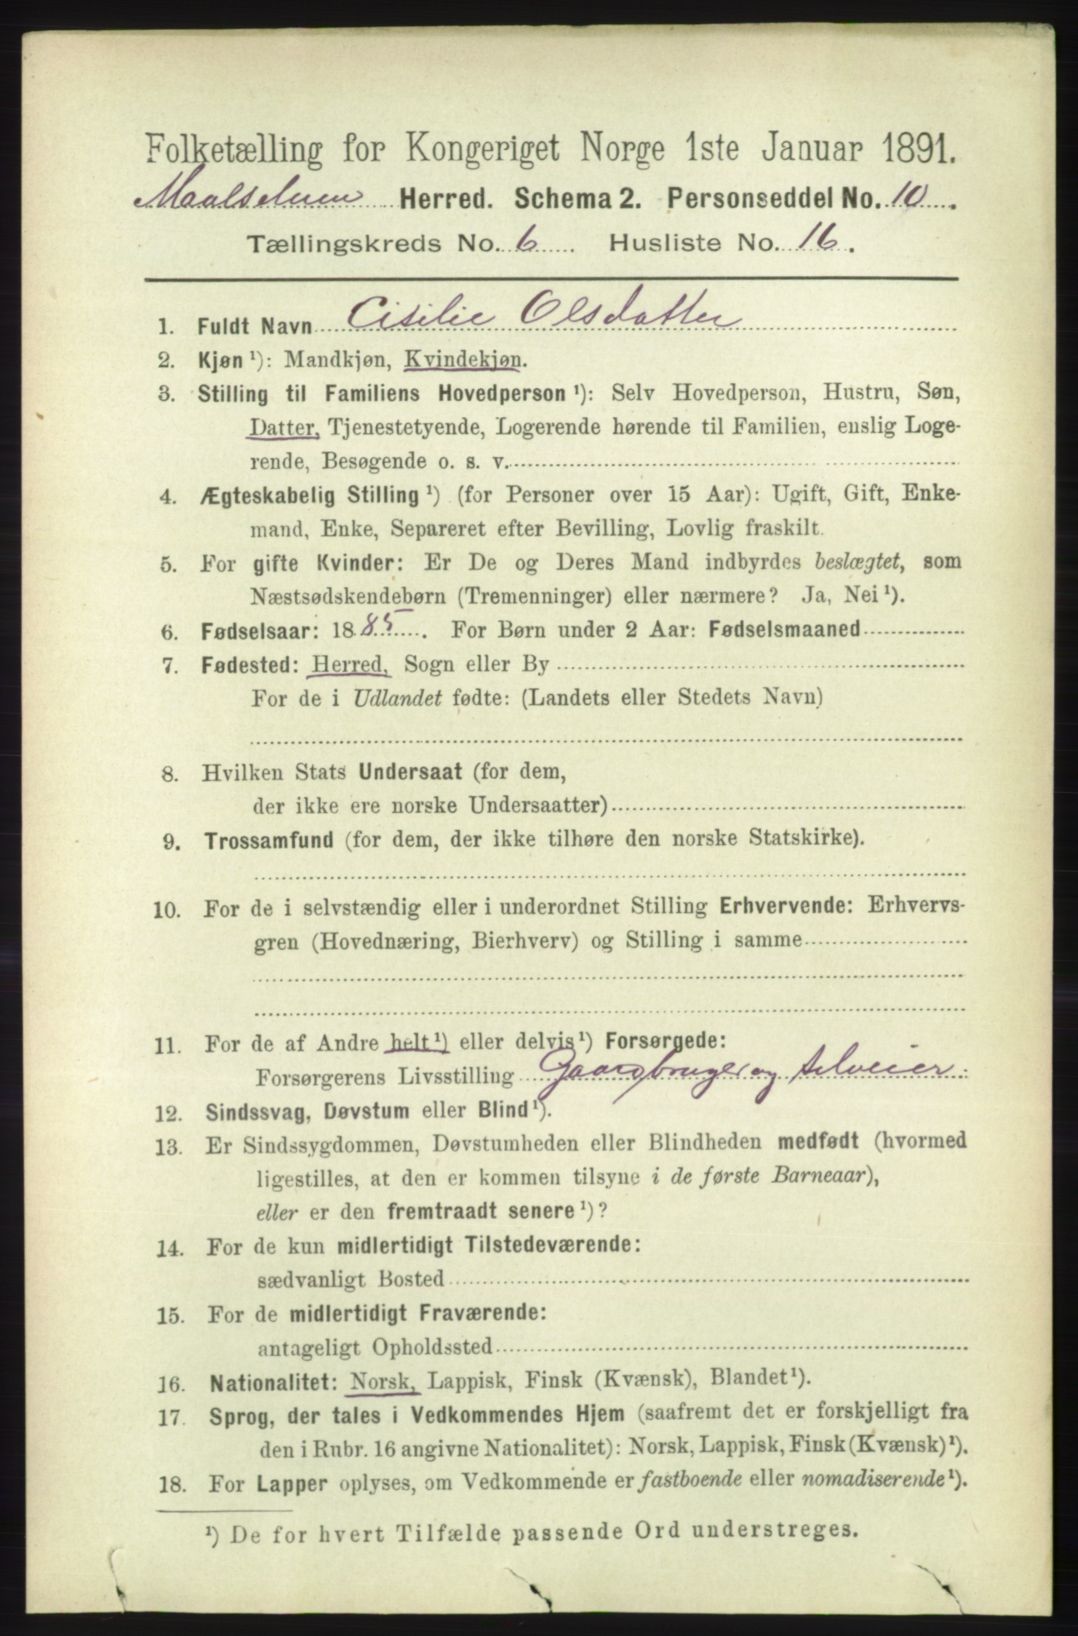 Folketælling for Kongeriget Norge 1ste Januar 1891.
Maalselven Herred. Schema 2. Personseddel No. 10.
Tællingskreds No. 6 Husliste No. 16.
1. Fuldt Navn Cisilie Olsdatter
2. Kjøn ¹): Mandkjøn, Kvindekjøn.
3. Stilling til Familiens Hovedperson ¹): Selv Hovedperson, Hustru, Søn,
Datter, Tjenestetyende, Logerende hørende til Familien, enslig Loge-
rende, Besøgende o. s. v.
4. Ægteskabelig Stilling ¹) (for Personer over 15 Aar): Ugift, Gift, Enke-
mand, Enke, Separeret efter Bevilling, Lovlig fraskilt.
5. For gifte Kvinder: Er De og Deres Mand indbyrdes beslægtet, som
Næstsødskendebørn (Tremenninger) eller nærmere? Ja, Nei ¹).
6. Fødselsaar: 1885. For Børn under 2 Aar: Fødselsmaaned
7. Fødested: Herred, Sogn eller By
For de i Udlandet fødte: (Landets eller Stedets Navn)
8. Hvilken Stats Undersaat (for dem,
der ikke ere norske Undersaatter)
9. Trossamfund (for dem, der ikke tilhøre den norske Statskirke).
10. For de i selvstændig eller i underordnet Stilling Erhvervende: Erhvervs-
gren (Hovednæring, Bierhverv) og Stilling i samme
11. For de af Andre helt ¹) eller delvis ¹) Forsørgede:
Forsørgerens Livsstilling Gaardbruger og selveier.
12. Sindssvag, Døvstum eller Blind ¹).
13. Er Sindssygdommen, Døvstumheden eller Blindheden medfødt (hvormed
ligestilles, at den er kommen tilsyne i de første Barneaar),
eller er den fremtraadt senere ¹)?
14. For de kun midlertidigt Tilstedeværende:
sædvanligt Bosted
15. For de midlertidigt Fraværende:
antageligt Opholdssted
16. Nationalitet: Norsk, Lappisk, Finsk (Kvænsk), Blandet ¹).
17. Sprog, der tales i Vedkommendes Hjem (saafremt det er forskjelligt fra
den i Rubr. 16 angivne Nationalitet): Norsk, Lappisk, Finsk (Kvænsk) ¹).
18. For Lapper oplyses, om Vedkommende er fastboende eller nomadiserende ¹).
¹) De for hvert Tilfælde passende Ord understreges.